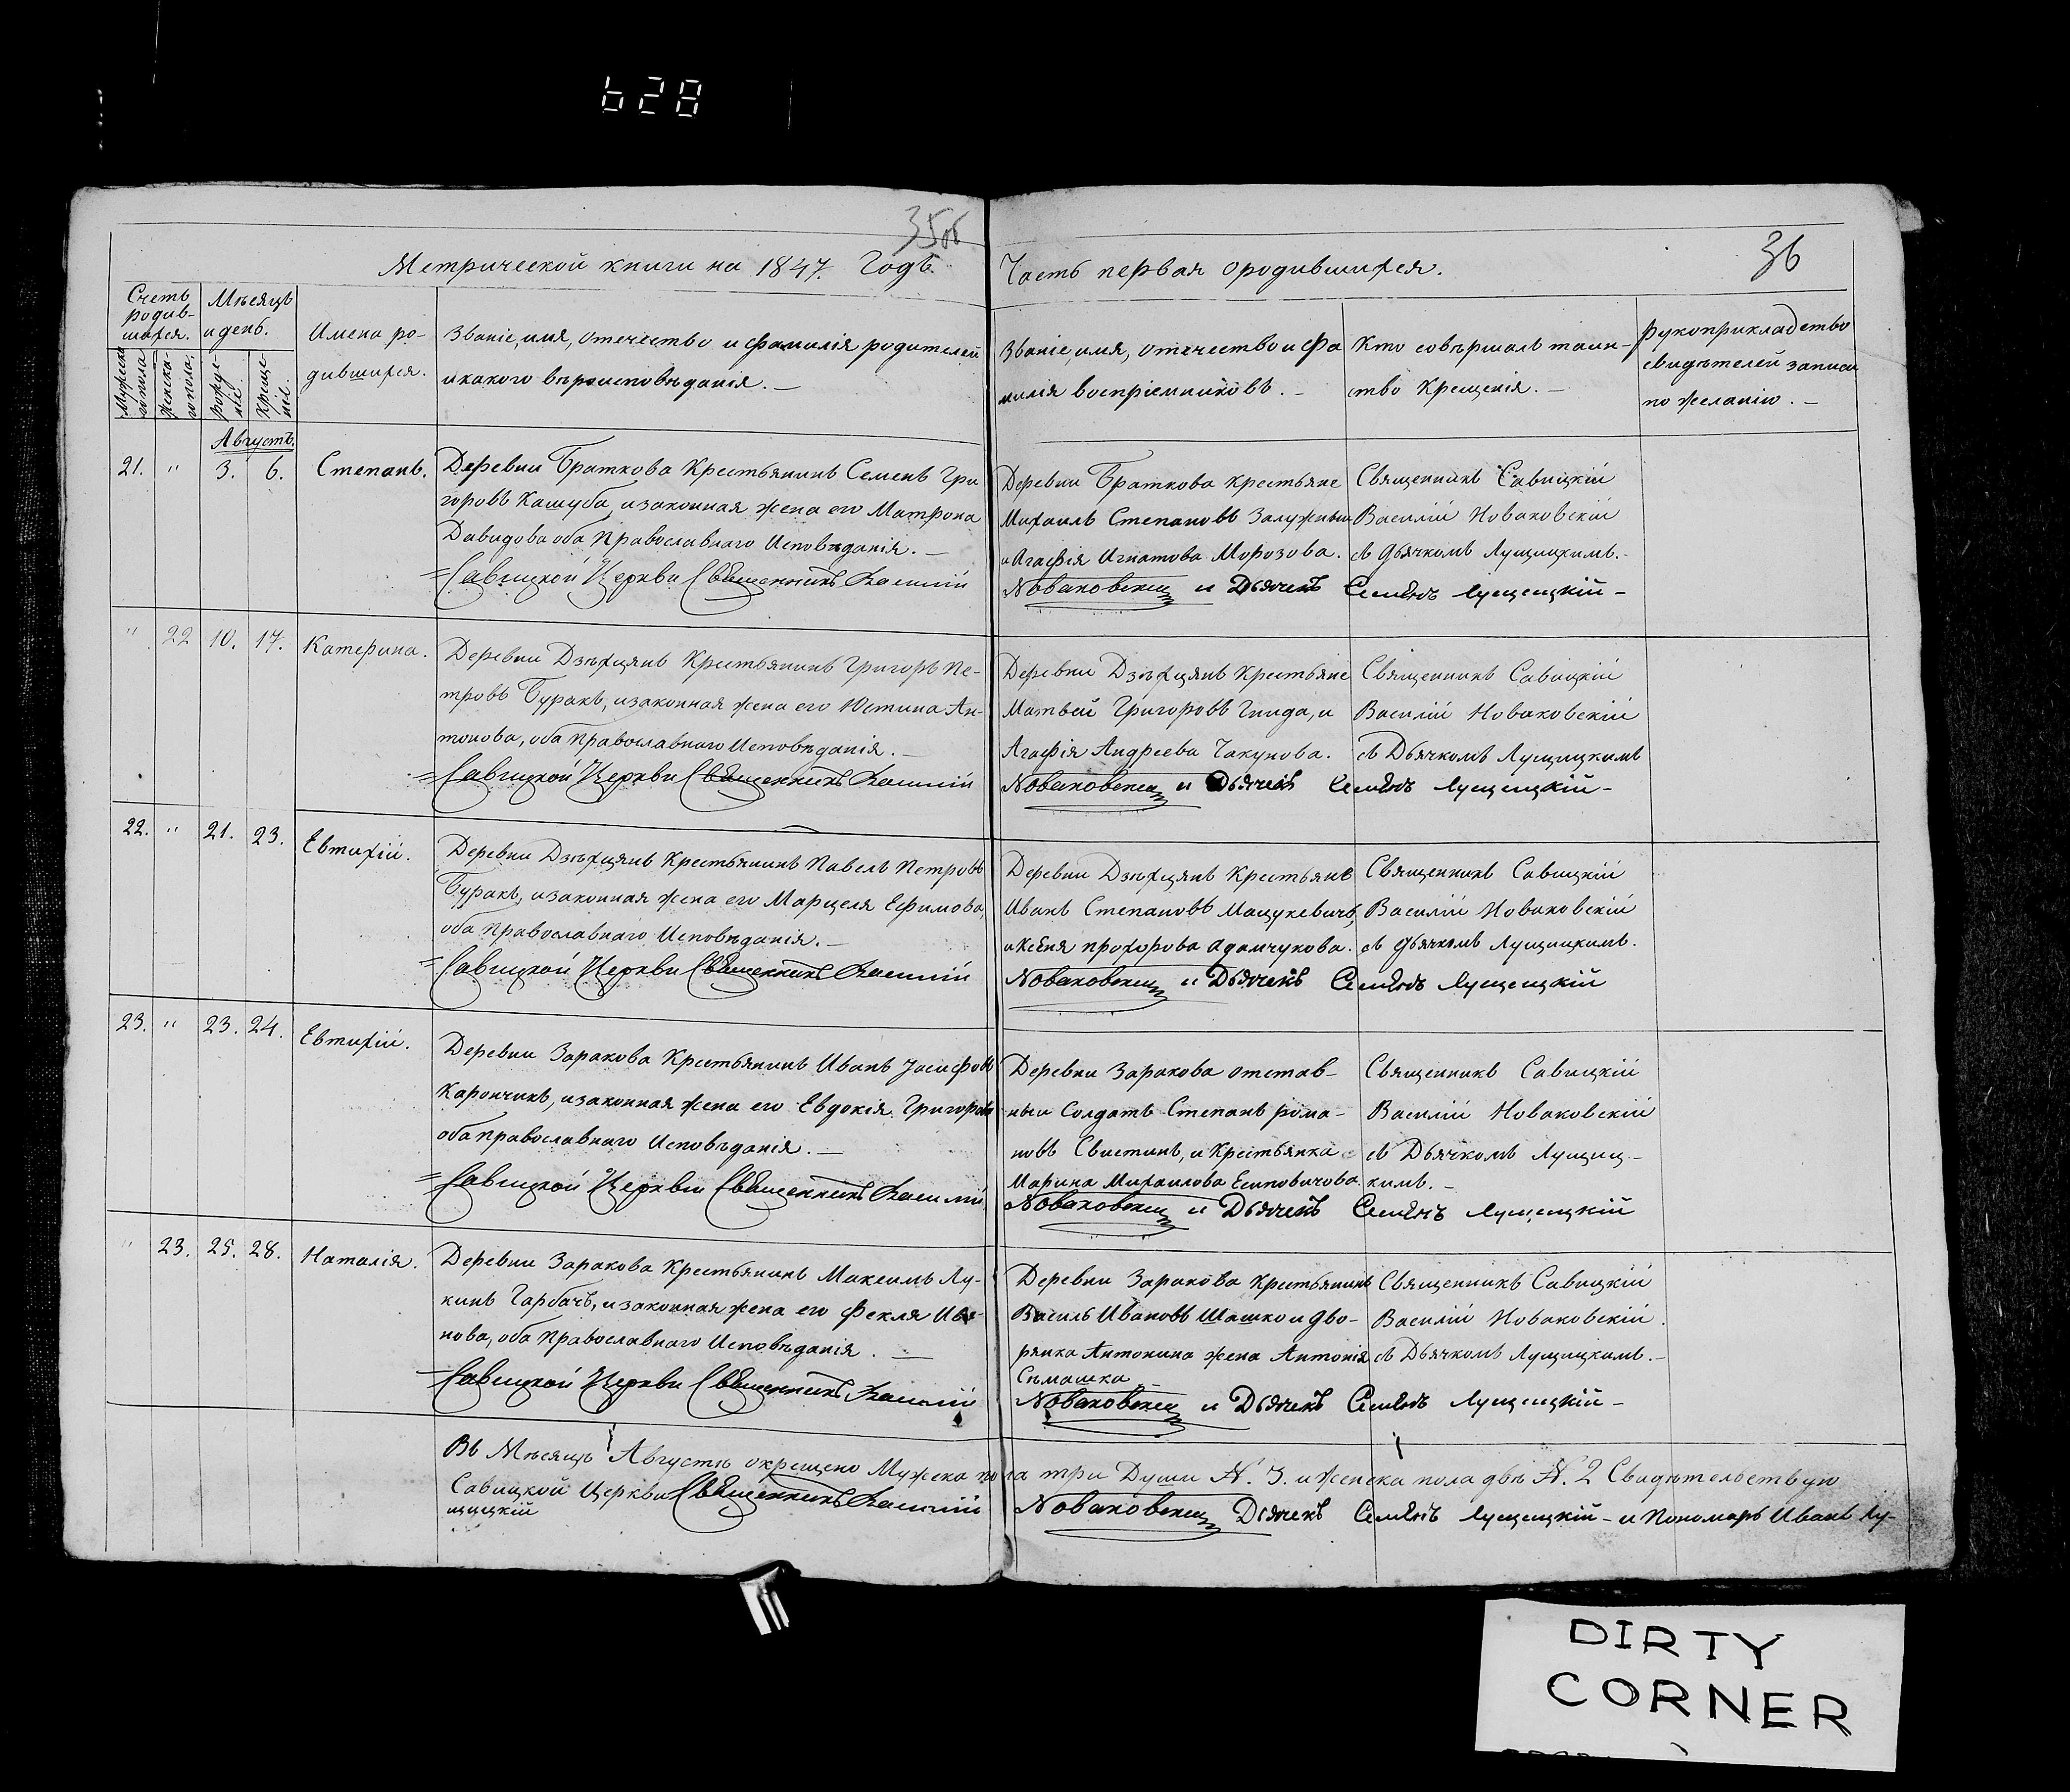 628
35об
36
Метрической книги на 1847. Годъ.
Часть первая о родившихся.
Счетъ родив-
шихся.
Мѣсяцъ
и день.
Мужеска
го пола
Женска-
го пола.
рожде-
нiе.
креще-
нiе.
Имена ро-
дившихся.
Званiе, имя, отечество и фамилiя родителей
и какого вѣроисповѣданiя. —
Званiе, имя, отечество и фа
милiя воспрiемниковъ. –
Кто совѣршалъ таин-
ство Крещенiя. –
Рукоприкладство
свидѣтелей записи
по желанiю. –
Августъ.
21. " 3. 6. Степанъ.
Деревни Браткова Крестьянинъ Семенъ Гри
горовъ Кашуба, и законная жена его Матрона
Давидова оба Православнаго Исповѣданiя. —
=Савицкой Церкви Священникъ Василiй
Деревни Браткова крестьяне
Михаилъ Степановъ Залужный
и Агафiя Игнатова Морозова.
Новаковскiй и Дьячекъ Семенъ Лущицкiй –
Священникъ Савицкiй
Василiй Новаковскiй
съ дьячкомъ Лущицкимъ. –
" 22 10. 17. Катерина.
Деревни Дзѣхцянъ Крестьянинъ Григоръ Пе-
тровъ Буракъ, и законная жена его Юстина Ан-
тонова, оба Православнаго Исповѣданiя. —
=Савицкой Церкви Священникъ Василiй
Деревни Дзѣхцянъ Крестьяне
Матвей Григоровъ Гнида, и
Агафiя Андреева Чакунова.
Новаковскiй и Дьячекъ Семенъ Лущицкiй –
Священникъ Савицкiй
Василiй Новаковскiй
съ Дьячкомъ Лущицкимъ
22. " 21. 23. Евтихiй.
Деревни Дзѣхцянъ Крестьянинъ Павелъ Петровъ
Буракъ, и законная жена его Марцеля Ефимова,
оба православнаго Исповѣданiя. —
=Савицкой Церкви Священникъ Василiй
Деревни Дзѣхцянъ Крестьяне
Иванъ Степановъ Мацукевичъ,
и Ксенiя прохорова Адамчукова.
Новаковскiй и Дьячекъ Семенъ Лущицкiй
Священникъ Савицкiй
Василiй Новаковскiй
съ дьячкомъ Лущицкимъ.
23. " 23. 24. Евтихiй.
Деревни Заракова Крестьянинъ Иванъ Iосифовъ
Карончикъ, и законная жена его Евдокiя Григорова
оба православнаго Исповѣданiя. —
=Савицкой Церкви Священникъ Василiй
Деревни Заракова отстав-
ный Солдатъ Степанъ рома-
новъ Свистинъ, и Крестьянка
Марина Михаилова Есиповичова.
Новаковскiй и Дьячекъ Семенъ Лущицкiй
Священникъ Савицкiй
Василiй Новаковскiй
съ Дьячкомъ Лущиц-
кимъ. –
" 23. 25. 28. Наталiя.
Деревни Заракова Крестьянинъ Максимъ Лу-
кинъ Гарбачъ, и законная жена его Фекля Ива-
нова, оба Православнаго Исповѣданiя. —
=Савицкой Церкви Священникъ Василiй
Деревни Заракова Крестьянинъ
Василь Ивановъ Шашко и дво-
рянка Антонина жена Антонiя
Сѣмашка
Новаковскiй и Дьячекъ Семенъ Лущицкiй –
Священникъ Савицкiй
Василiй Новаковскiй.
съ Дьячкомъ Лущицкимъ. –
Въ Мѣсяцѣ Августѣ окрещено Мужска пола три Души №. 3. и женска пола двѣ №. 2 Свидѣтельствую
Савицкой Церкви Священникъ Василiй Новаковскiй Дьячекъ Семенъ Лущицкiй – и Пономарь Иванъ Лу-
щицкiй
DIRTY
CORNER